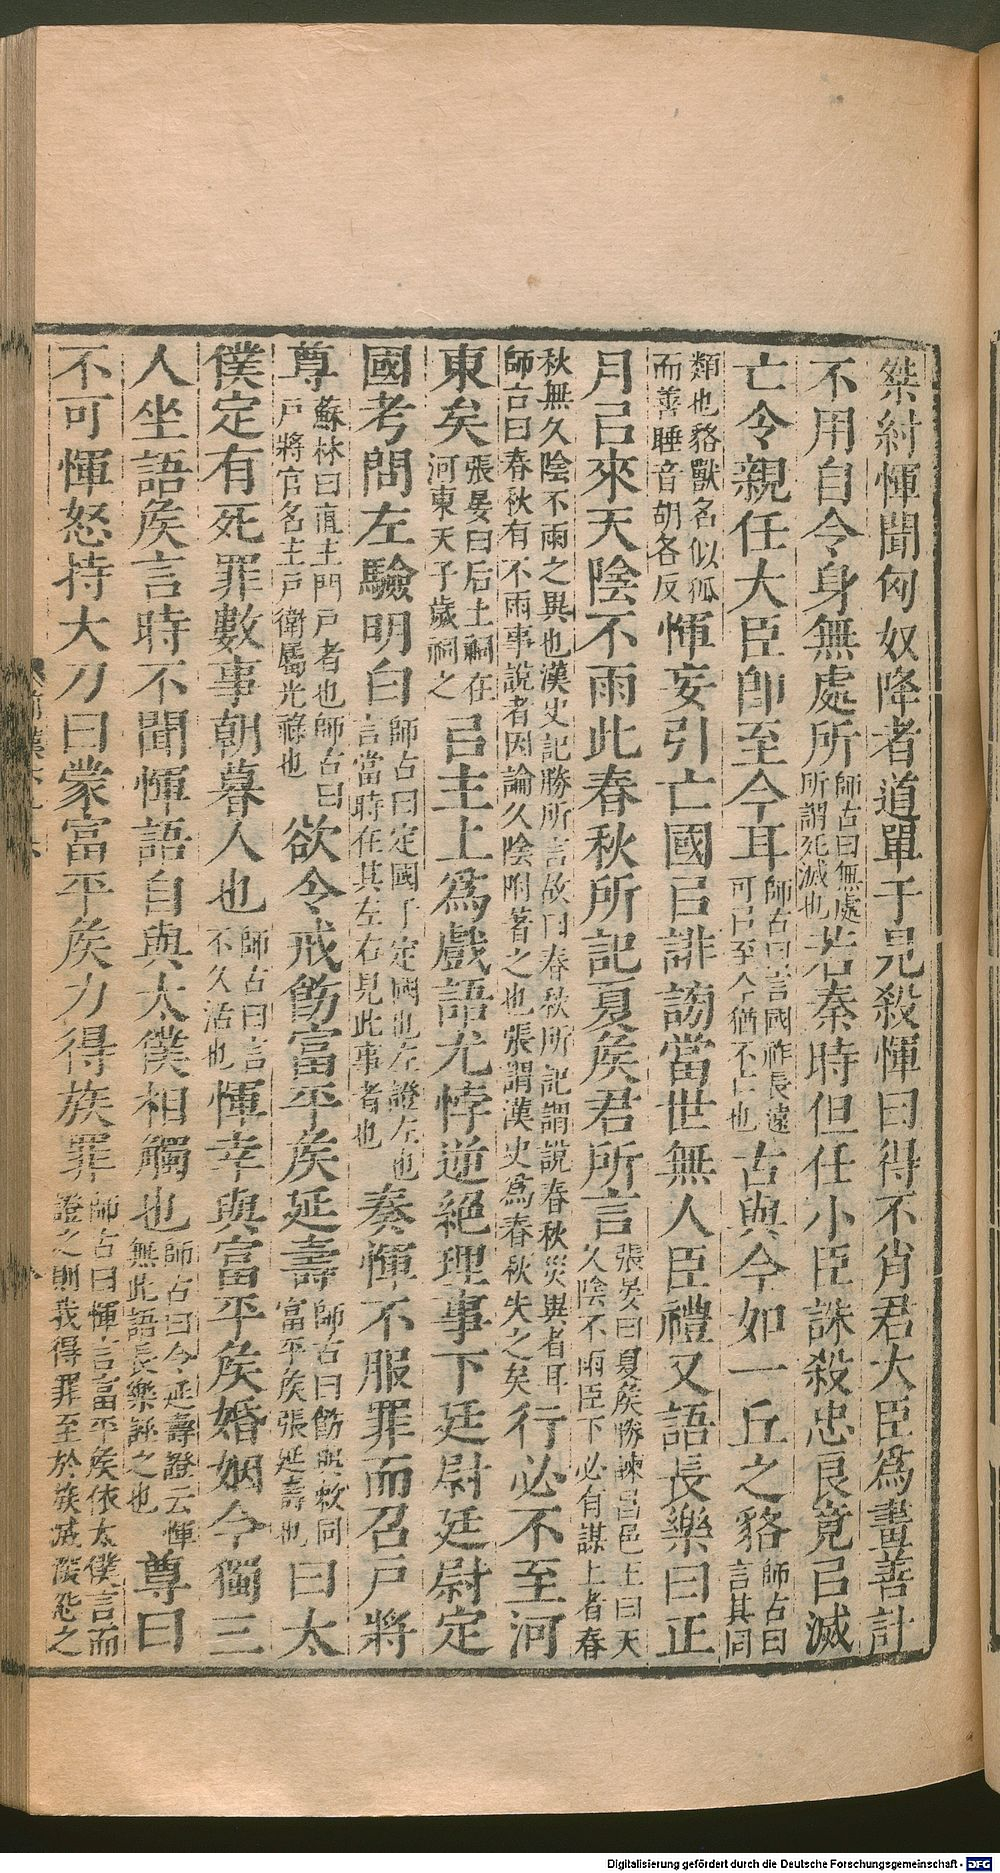 桀紂惲聞匈奴降者道單于見殺惲曰得不肖君大臣爲畫善計
不用自令身無處所師古曰無處所謂死滅也若秦時但任小臣誅殺忠良竟㠯滅
亡令親任大臣卽至今耳師古曰言國祚長遠可㠯至今猶不亡也古與今如一丘之貉師古曰言其同
類也貉獸名似狐而善睡音胡各反惲妄引亡國㠯誹謗當世無人臣禮又語長樂曰正
月㠯來天陰不雨此春秋所記夏矦君所言張晏曰夏矦勝諫昌邑王曰天久陰不雨臣下必有謀上者春
秋無久陰不雨之異也漢史記勝所言故曰春秋所記謂說春秋災異者耳師古曰春秋有不雨事說者因論久陰附著之也張謂漢史爲春秋失之矣行必不至河
東矣張晏曰后土祠在河東天子歲祠之㠯主上爲戲語尤悖逆絕理事下廷尉廷尉定
國考問左驗明白師古曰定國于定國也左證左也言當時在其左右見此事者也奏惲不服罪而召戶將
尊蘇林曰直主門戶者也師古曰戶將官名主戶衛屬光祿也欲令戒飭富平矦延壽師古曰飭與敕同富平矦張延壽也曰太
僕定有死罪數事朝暮人也師古曰言不久活也惲幸與富平矦婚姻今獨三
人坐語矦言時不聞惲語自與太僕相觸也師古曰令延壽證云惲無此語長樂誣之也尊曰
不可惲怒持大刀曰蒙富平矦力得族罪師古曰惲言富平矦依太僕言而證之則我得罪至於族滅深怨之
Digitalisierung gefördert durch die Deutsche Forschungsgemeinschaft - DFG